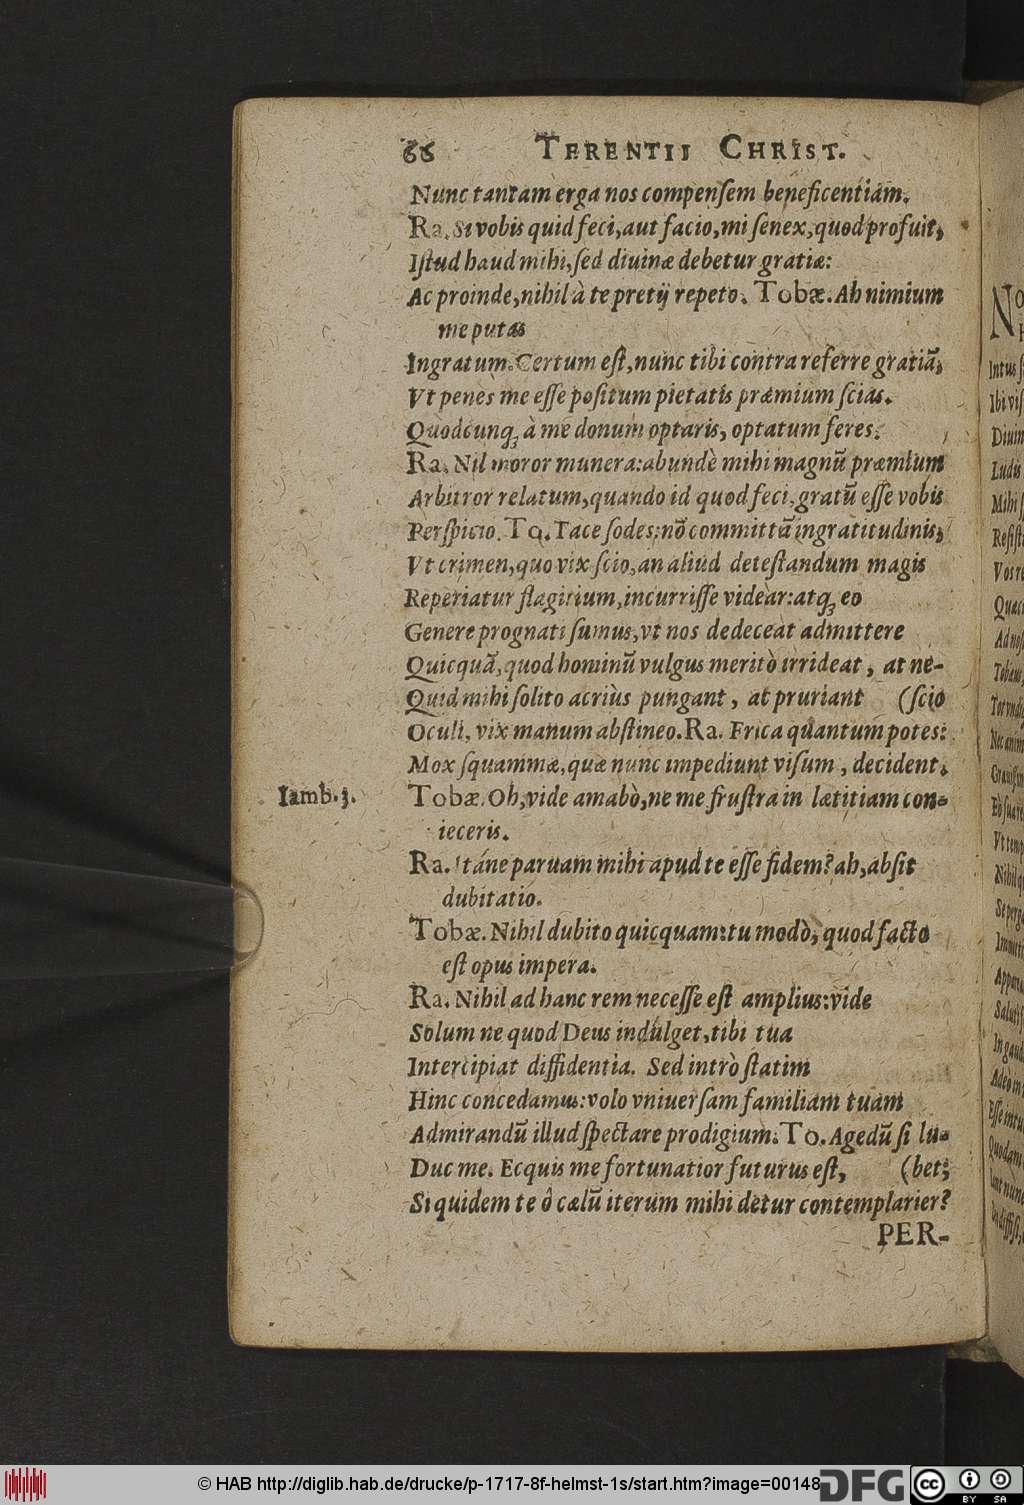 66 TERENTII CHRIST.
Nunc tantam erga nos compenſem beneficentiam.
Ra. Si vobis quid feci, aut facio, mi ſenex, quod profuit,
Iſtud haud mihi, ſed diuinæ debetur gratiæ:
Ac proinde, nihil à te pretij repeto. Tobæ. Ah nimium
me putas
Ingratum. Certum eſt, nunc tibi contra referre gratiã,
Vt penes me eſſe poſitum pietatis præmium ſcias.
Quodcunq; à me donum optaris, optatum feres.
Ra. Nil moror munera: abundè mihi magnũ præmium
Arbitror relatum, quando id quod feci, gratũ eſſe vobis
Perſpicio. To. Tace ſodes: nõ committã ingratitudinis,
Vt crimen, quo vix ſcio, an aliud deteſtandum magis
Reperiatur flagitium, incurriſſe videar: atq; eo
Genere prognati ſumus, vt nos dedeceat admittere
Quicquã, quod hominũ vulgus meritò irrideat, at ne-
Quid mihi ſolito acriùs pungant, at pruriant (ſcio
Oculi, vix manum abſtineo. Ra. Frica quantum potes:
Mox ſquammæ, quæ nunc impediunt viſum, decident.
Iamb. 3. Tobæ. Oh, vide amabò, ne me fruſtra in lætitiam con-
ieceris.
Ra. Itáne paruam mihi apud te eſſe fidem? ah, abſit
dubitatio.
Tobæ. Nihil dubito quicquam: tu modò, quod facto
eſt opus impera.
Ra. Nihil ad hanc rem neceſſe eſt amplius: vide
Solum ne quod Deus indulget, tibi tua
Intercipiat diffidentia. Sed intrò ſtatim
Hinc concedamus: volo vniuerſam familiam tuam
Admirandũ illud ſpectare prodigium. To. Agedũ ſi lu-
Duc me. Ecquis me fortunatior futurus eſt, (bet;
Siquidem te ô cælũ iterum mihi detur contemplarier?
PER-
Intus
Ibi viſ
Diuin
Ludis
Mihi
Vos re
© HAB http://diglib.hab.de/drucke/p-1717-8f-helmst-1s/start.htm?image=00148
DFG
cc BY SA